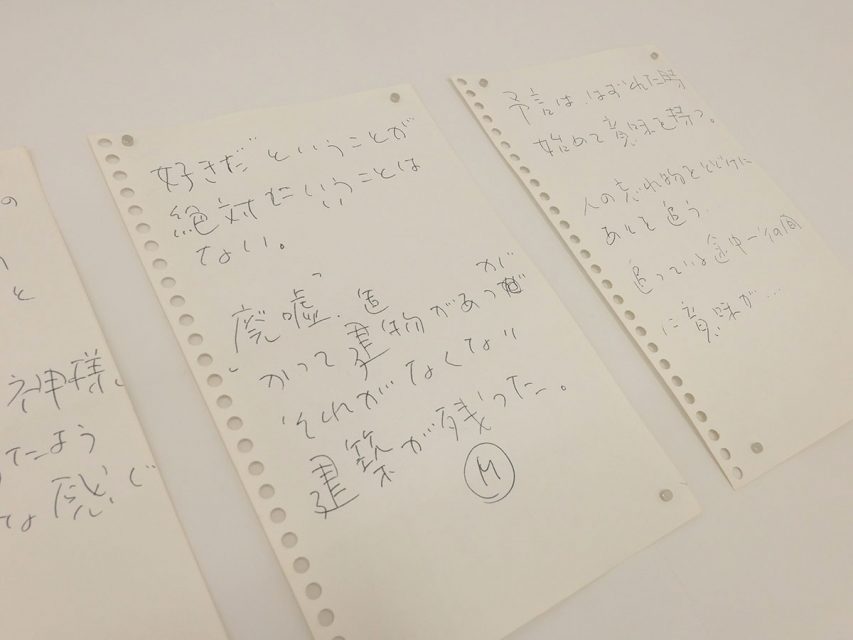 の
と
神様
たよう
な感じ
好きだということが
絶対だということは
ない。
廃墟
かつて建物があったが
それがなくなり
建築が残った。
M
予言は、はずれた時
始めて意味を持つ。
人の忘れ物をとどけに
あとを追う。
追っている途中
に意味が…